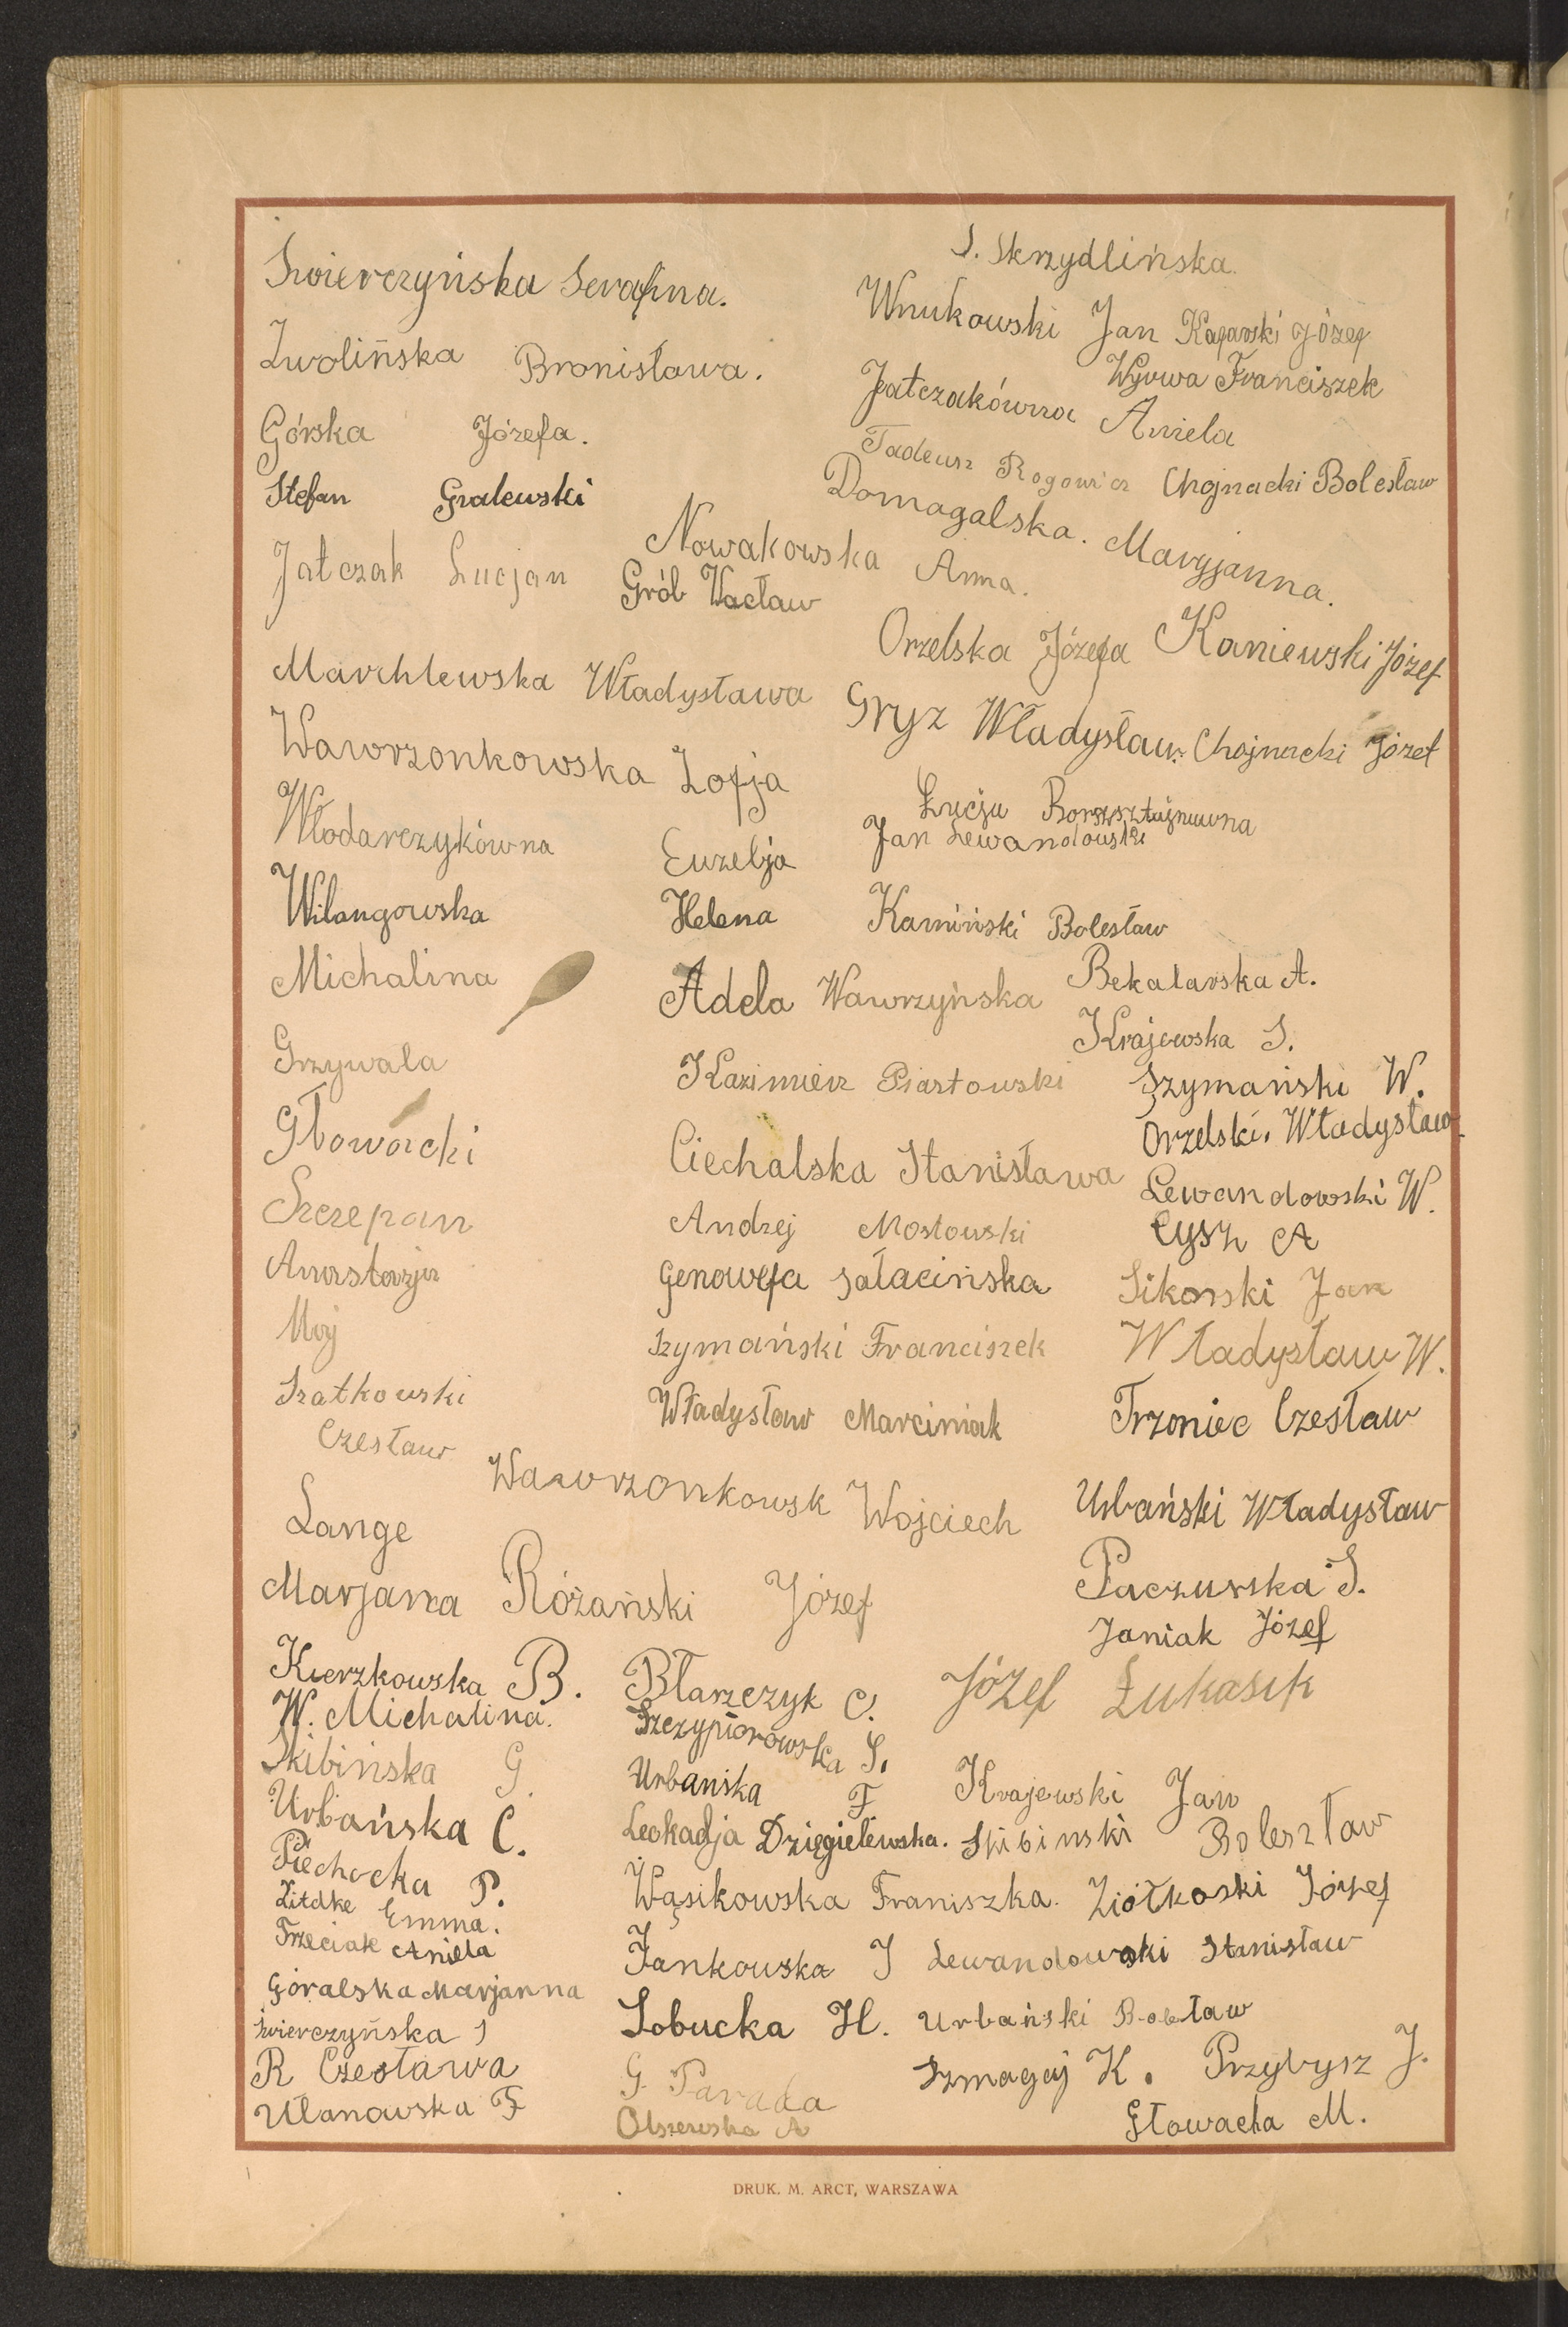 Świerczyńska Serafina.
S. Skrzydlińska.
Zwolińska Bronisława.
Wnukowski Jan Kafarski Józef
Wyrwa Franciszek
Górska Józefa.
Jatczakówna Aniela
Stefan Gralewski
Tadeusz Rogowicz Chojnacki Bolesław
Domagalska. Maryjanna.
Nowakowska Anna.
Jatczak Lucjan
Grób Wacław
Orzelska Józefa Kaniewski Józef
Marchlewska Władysława
Gryz Władysław. Chojnacki Józef
Wawrzonkowska Zofja
Łucja
Jan Lewandowski
Włodarczykówna Euzebja
Wilangowska Helena
Kamiński Bolesław
Michalina
Adela Wawrzyńska
Bekalarska A.
Krajewska S.
Grzywala
Kazimierz Piastowski
Szymański W.
Orzelski. Władysław
Głowacki
Ciechalska Stanisława
Lewandowski W.
Szczepan
Andrzej Mostowski
Cysz A
Anastazja
Genowefa Sałacińska
Sikorski Jan
Mój
Szymański Franciszek
Władysław W.
Szatkowski
Czesław
Władysław Marciniak
Trzoniec Czesław
Wawrzonkowsk Wojciech
Lange
Urbański Władysław
Marjanna
Różański Józef
Paczuska S.
Janiak Józef
Kierzkowska B.
Błarzczyk C.
Józef Łukasik
W. Michalina.
Szczypiorowska S.
Skibińska G.
Urbańska F
Krajewski Jan
Urbańska C.
Leokadja Dzięgielewska. Skibinski Boleszław
Piechocka P.
Wąsikowska Franiszka. Ziółkoski Józef
Litdke Emma.
Trzeciak Aniela
Jankowska J Lewandowski Stanisław
Góralska Marjanna
Sobucka H. Urbański
Świerczyńska S
R Czesława
G. Parada
Szmagaj K. Przybysz J.
Ulanowska F
Olszewska A
Głowacka M.
DRUK. M. ARCT, WARSZAWA